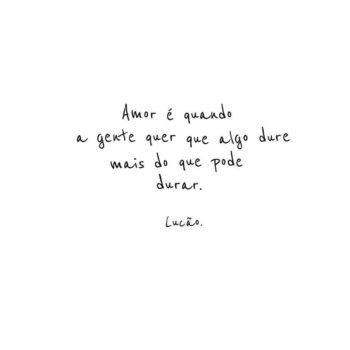 Amor é quando
a gente quer que algo dure
mais do que pode
durar.
Lucão.